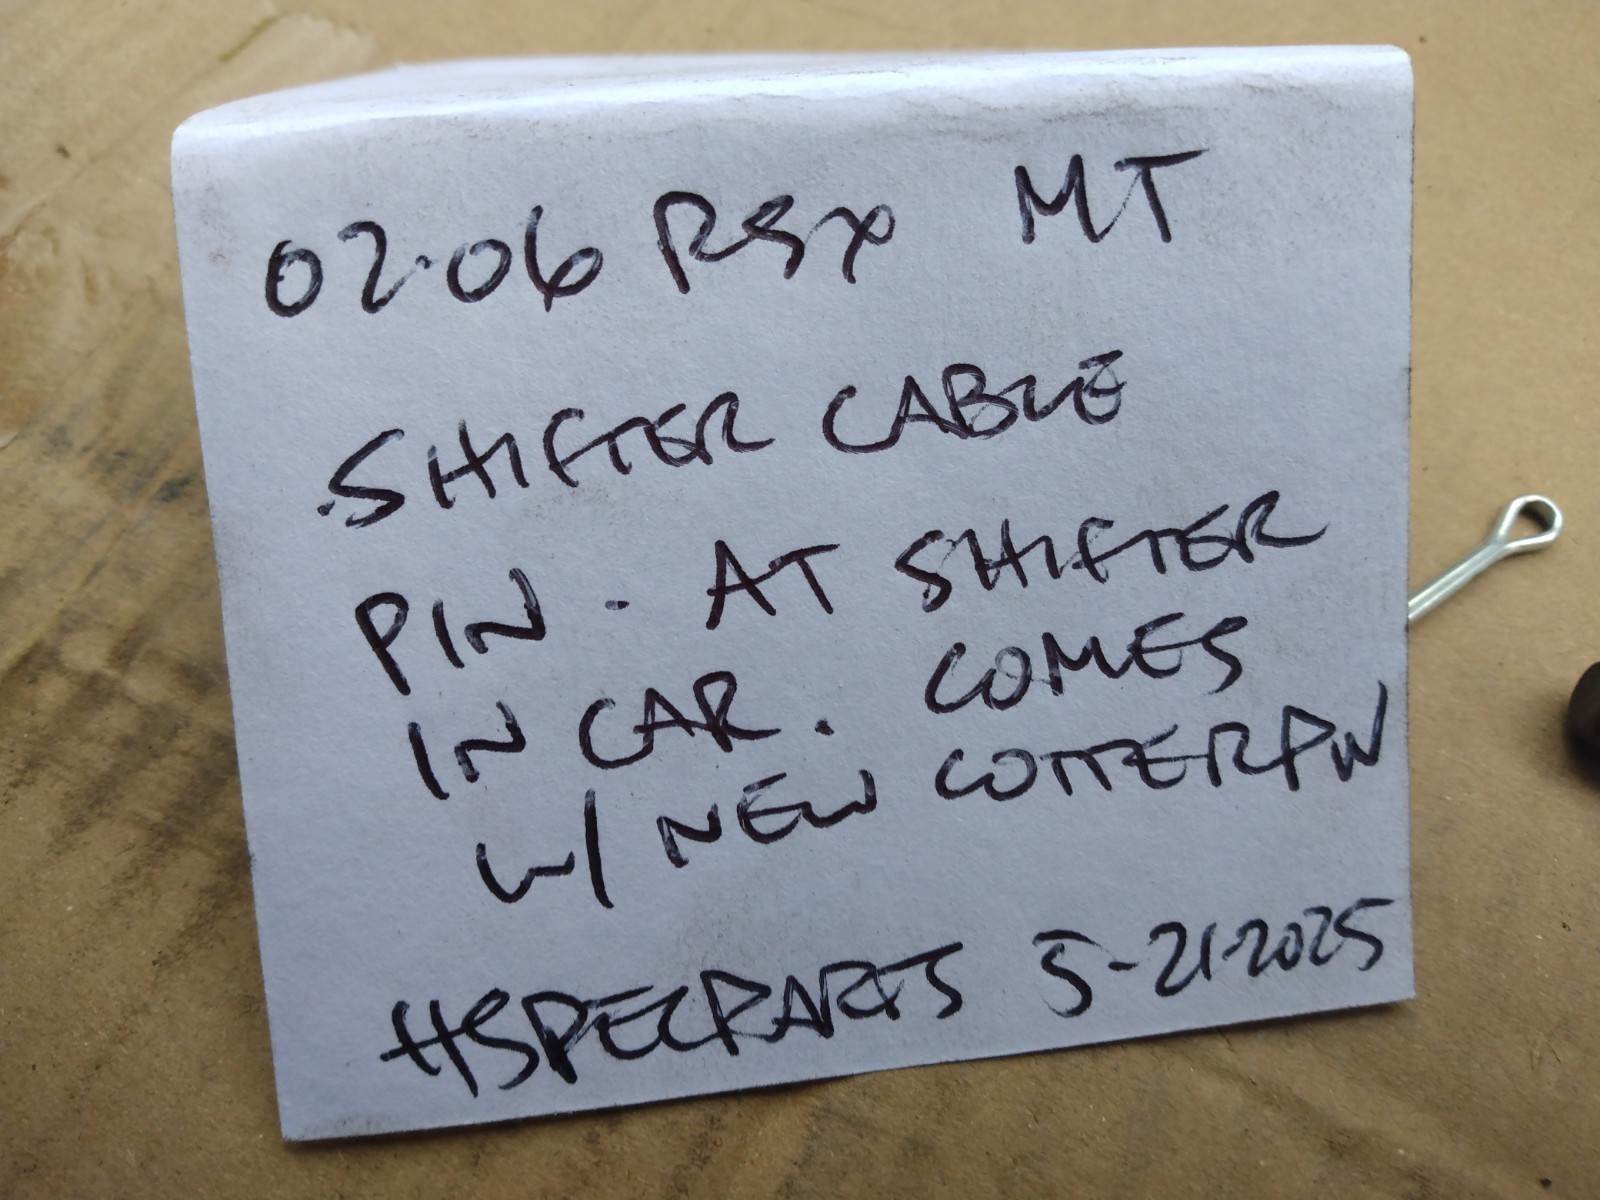 02-06 RSX MT
SHIFTER CABLE
PIN - AT SHIFTER
IN CAR. COMES
W/ NEW COTTERPIN
HSPECPARTS 5-21-2025